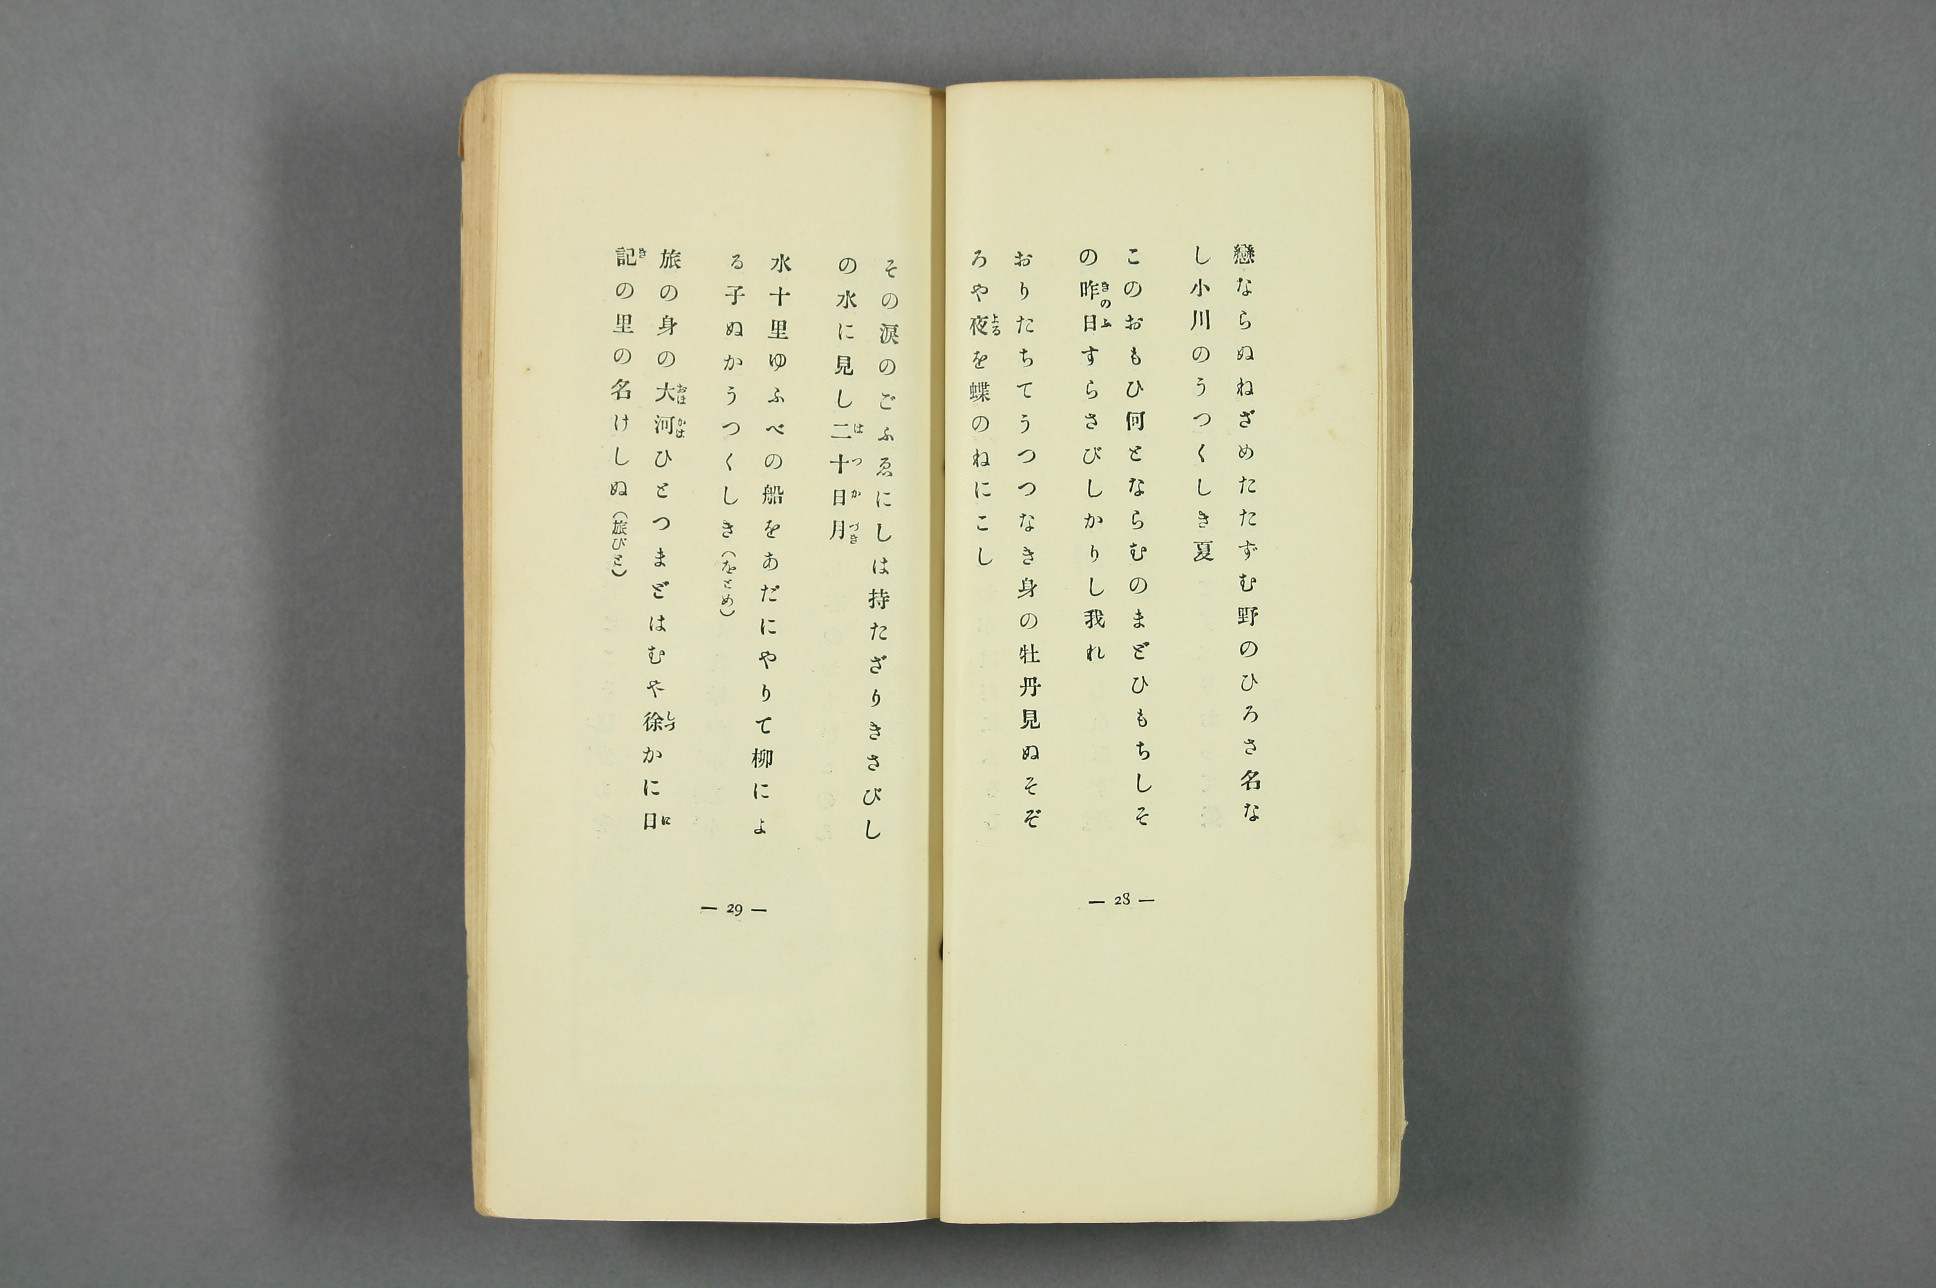 戀ならぬねざめたたずむ野のひろさ名な
し小川のうつくしき夏
このおもひ何とならむのまどひもちしそ
の昨日すらさびしかりし我れ
きのふ
おりたちてうつつなき身の牡丹見ぬそぞ
ろや夜を蝶のねにこし
よる
— 28 —
その涙のごふゑにしは持たざりきさびし
の水に見し二十日月
はつかづき
水十里ゆふべの船をあだにやりて柳によ
る子ぬかうつくしき(をとめ)
旅の身の大河ひとつまどはむや徐かに日
おほかは
しづ
に
記の里の名けしぬ(旅びと)
き
— 29 —